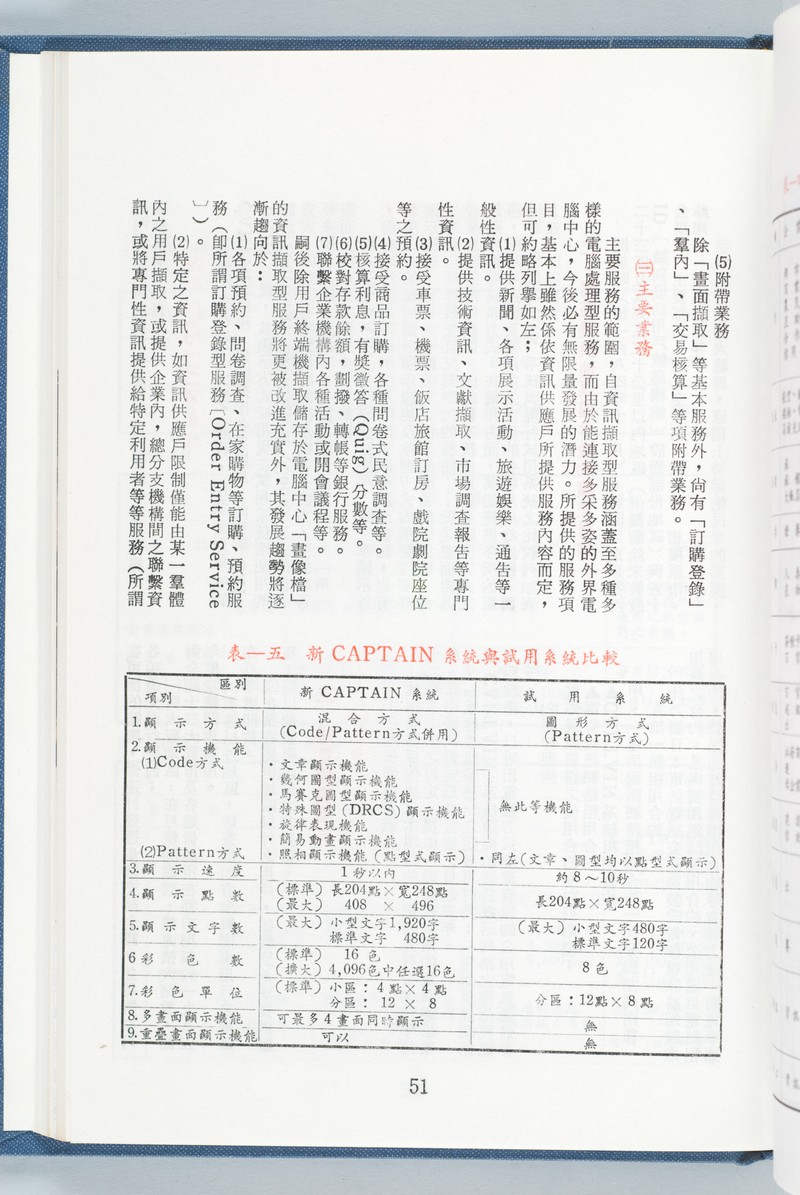 (5)附帶業務
除「畫面擷取」等基本服務外，尚有「訂購登錄」
、「羣內」、「交易核算」等項附帶業務。
㈢主要業務
主要服務的範圍，自資訊擷取型服務涵蓋至多種多
樣的電腦處理型服務，而由於能連接多采多姿的外界電
腦中心，今後必有無限量發展的潛力。所提供的服務項
目，基本上雖然係依資訊供應戶所提供服務內容而定，
但可約略列擧如左；
(1)提供新聞、各項展示活動、旅遊娛樂、通告等一
般性資訊。
(2)提供技術資訊、文獻擷取、市場調查報告等專門
性資訊。
(3)接受車票、機票、飯店旅館訂房、戲院劇院座位
等之預約。
(4)接受商品訂購，各種問卷式民意調查等。
(5)核算利息，有獎徵答（Quig）分數等。
(6)校對存款餘額，劃撥、轉帳等銀行服務。
(7)聯繫企業機構內各種活動或開會議程等。
嗣後除用戶終端機擷取儲存於電腦中心「畫像檔」
的資訊擷取型服務將更被改進充實外，其發展趨勢將逐
漸趨向於：
(1)各項預約、問卷調查、在家購物等訂購、預約服
務（卽所謂訂購登錄型服務〔Order Entry Service
〕）。
(2)特定之資訊，如資訊供應戶限制僅能由某一羣體
內之用戶擷取，或提供企業內，總分支機構間之聯繫資
訊，或將專門性資訊提供給特定利用者等等服務（所謂
表一五 新 CAPTAIN 系統與試用系統比較
區別
項別
新 CAPTAIN 系統
試用系統
1.顯示方式
混合方式
(Code/Pattern方式併用)
圖形方式
(Pattern方式)
2.顯示機能
(1)Code方式
・文章顯示機能
・幾何圖型顯示機能
・馬賽克圖型顯示機能
・特殊圖型(DRCS)顯示機能
・旋律表現機能
・簡易動畫顯示機能
無此等機能
(2)Pattern方式
・照相顯示機能（點型式顯示）
・同左(文章、圖型均以點型式顯示)
3.顯示速度
1秒以內
約8～10秒
4.顯示點數
（標準）長204點×寬248點
（最大） 408 × 496
長204點×寬248點
5.顯示文字數
（最大）小型文字1,920字
標準文字 480字
（最大）小型文字480字
標準文字120字
6彩色數
（標準） 16 色
（擴大）4,096色中任選16色
8色
7.彩色單位
（標準）小區：4點×4點
分區：12 × 8
分區：12點×8點
8.多畫面顯示機能
可最多4畫面同時顯示
無
9.重疊畫面顯示機能
可以
無
51